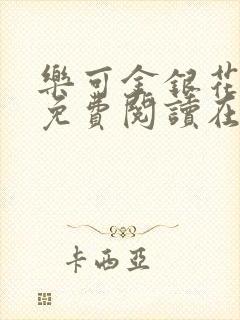 樂可金銀花
免費閱讀在
卡西亞